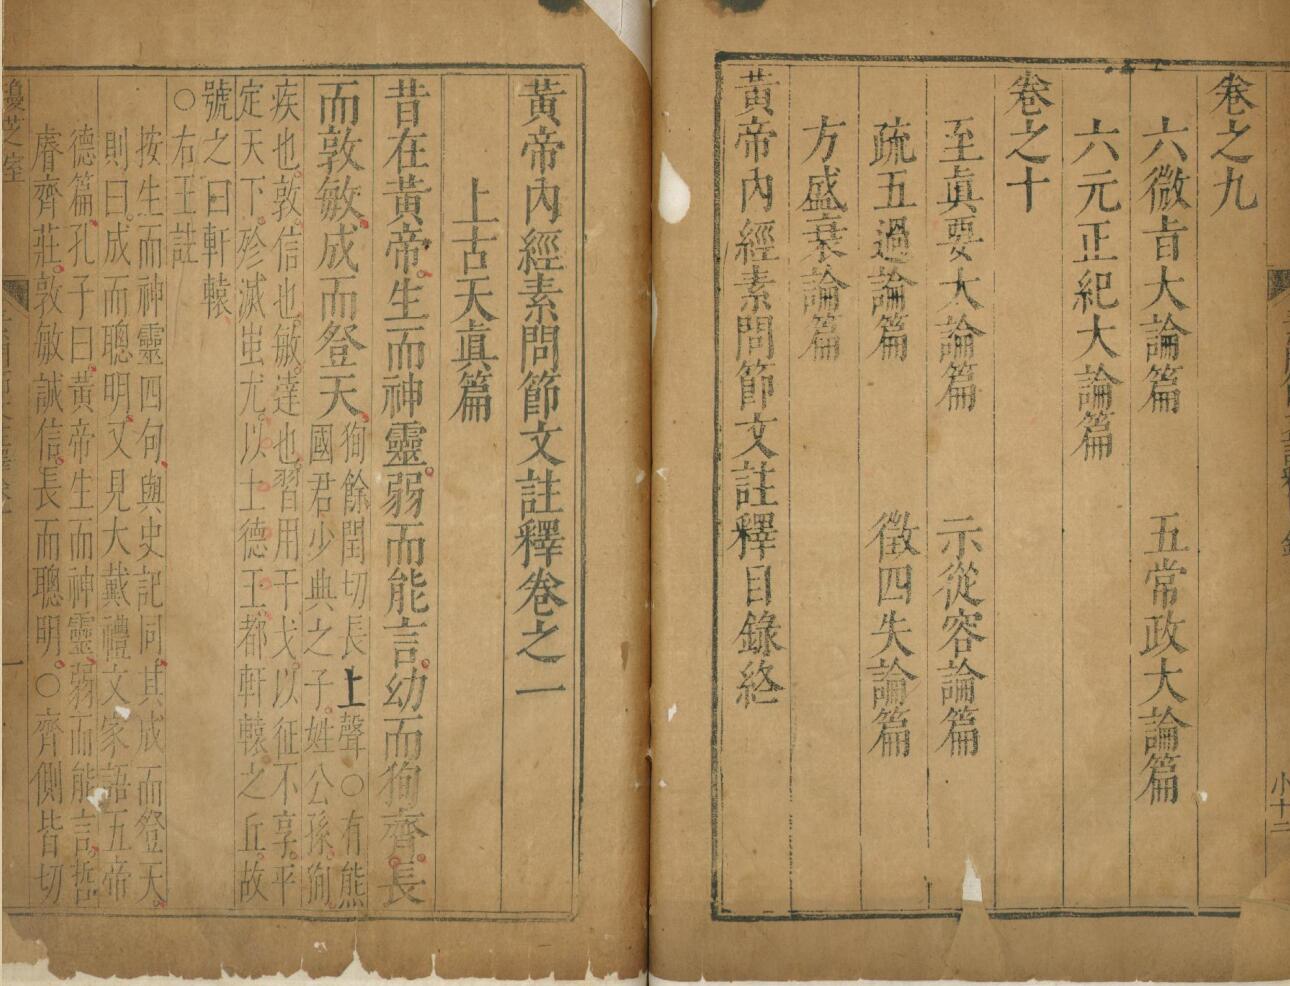 卷之九
六微旨大論篇　五常政大論篇
六元正紀大論篇
卷之十
至眞要大論篇　示從容論篇
疏五過論篇　徵四失論篇
方盛衰論篇
黃帝內經素問節文註釋目錄終
小十二
黃帝內經素問節文註釋卷之一
上古天眞篇
昔在黃帝生而神靈弱而能言幼而狥齊長
而敦敏成而登天狥餘閏切長上聲○有熊
國君少典之子姓公孫狥
疾也敦信也敏達也習用干戈以征不享平
定天下殄滅蚩尤以土德王都軒轅之丘故
號之曰軒轅
○右王註
按生而神靈四句與史記同其成而登天
則曰成而聰明又見大戴禮文家語五帝
德篇孔子曰黃帝生而神靈弱而能言哲
睿齊莊敦敏誠信長而聰明○齊側皆切
芝室
一